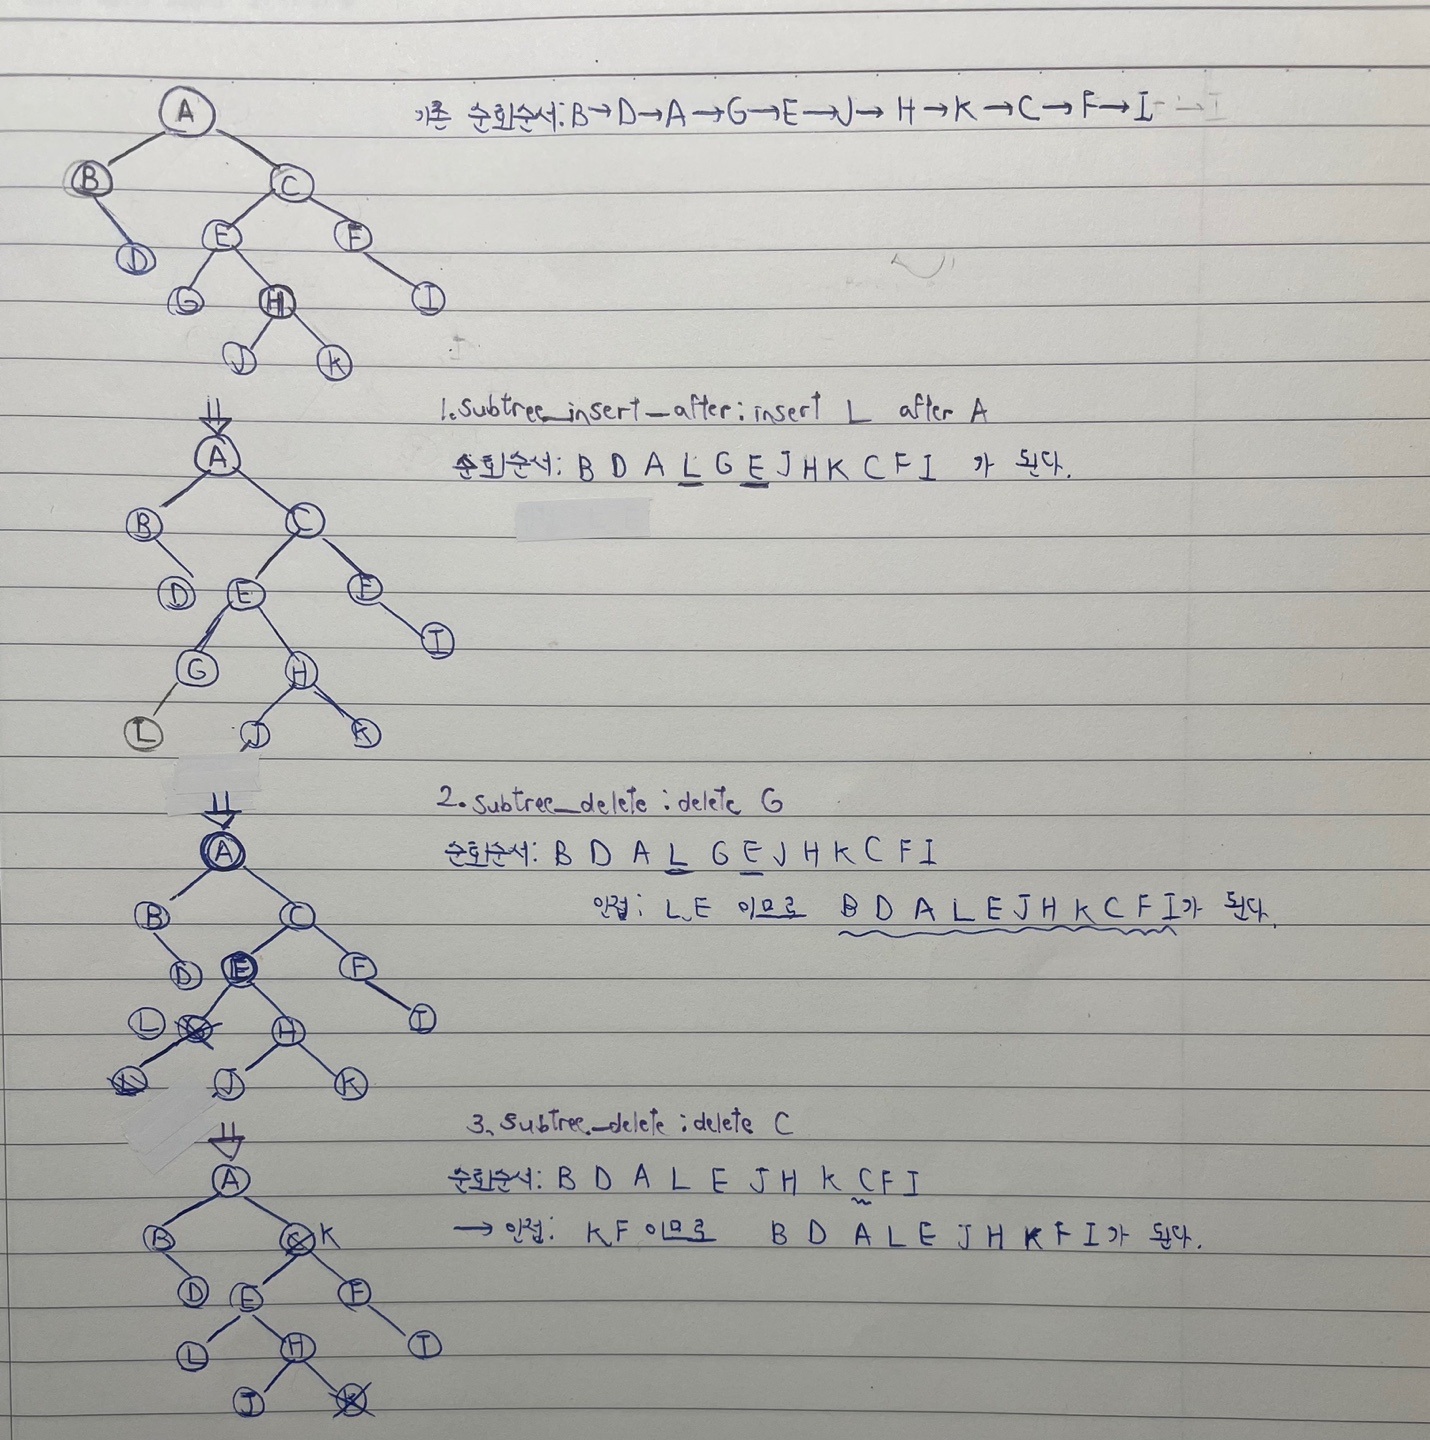 A
기존 순회순서: B→D→A→G→E→J→H→K→C→F→I
B
C
E
F
D
G
H
I
J
K
1. subtree_insert_after: insert L after A
A
순회순서: B D A L G E J H K C F I 가 된다.
B
C
D
E
F
I
G
H
L
J
K
2. subtree_delete: delete G
A
순회순서: B D A L G E J H K C F I
인접: L, E 이므로 B D A L E J H K C F I가 된다.
B
C
D
E
F
L
H
I
J
K
3. subtree_delete: delete C
A
순회순서: B D A L E J H K C F I
→ 인접: K F 이므로 B D A L E J H K F I가 된다.
B
C K
D
E
F
L
H
I
J
K